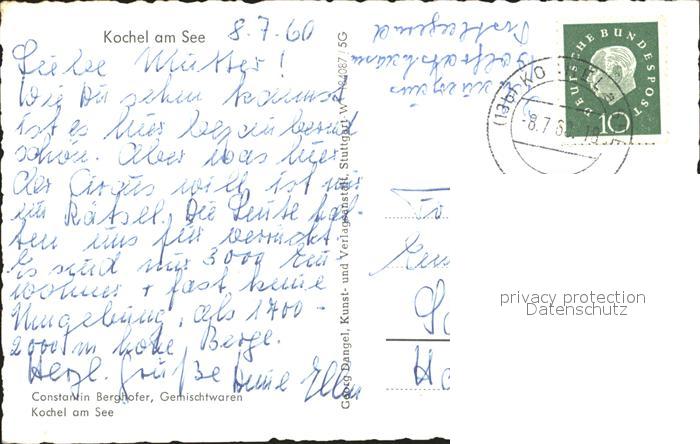 Kochel am See 8.7.60
Liebe Mutter!
Wie Du sehen kannst
ist es hier bezaubernd
schön. Aber was hier
der Circus will ist mir
ein Rätsel. Die Leute hal-
ten uns für verrückt.
Es sind nur 3000 Ein
wohner + fast keine
Umgebung, als 1700-
2000 m hohe Berge.
Herzl. Grüße Deine Ellen
Constantin Berghofer, Gemischtwaren
Kochel am See
Georg Dangel, Kunst- und Verlagsanstalt, Stuttgart
5G
Postlagernd
DEUTSCHE BUNDESPOST
10
(13b) KO
-8.7.60.-18
privacy protection
Datenschutz